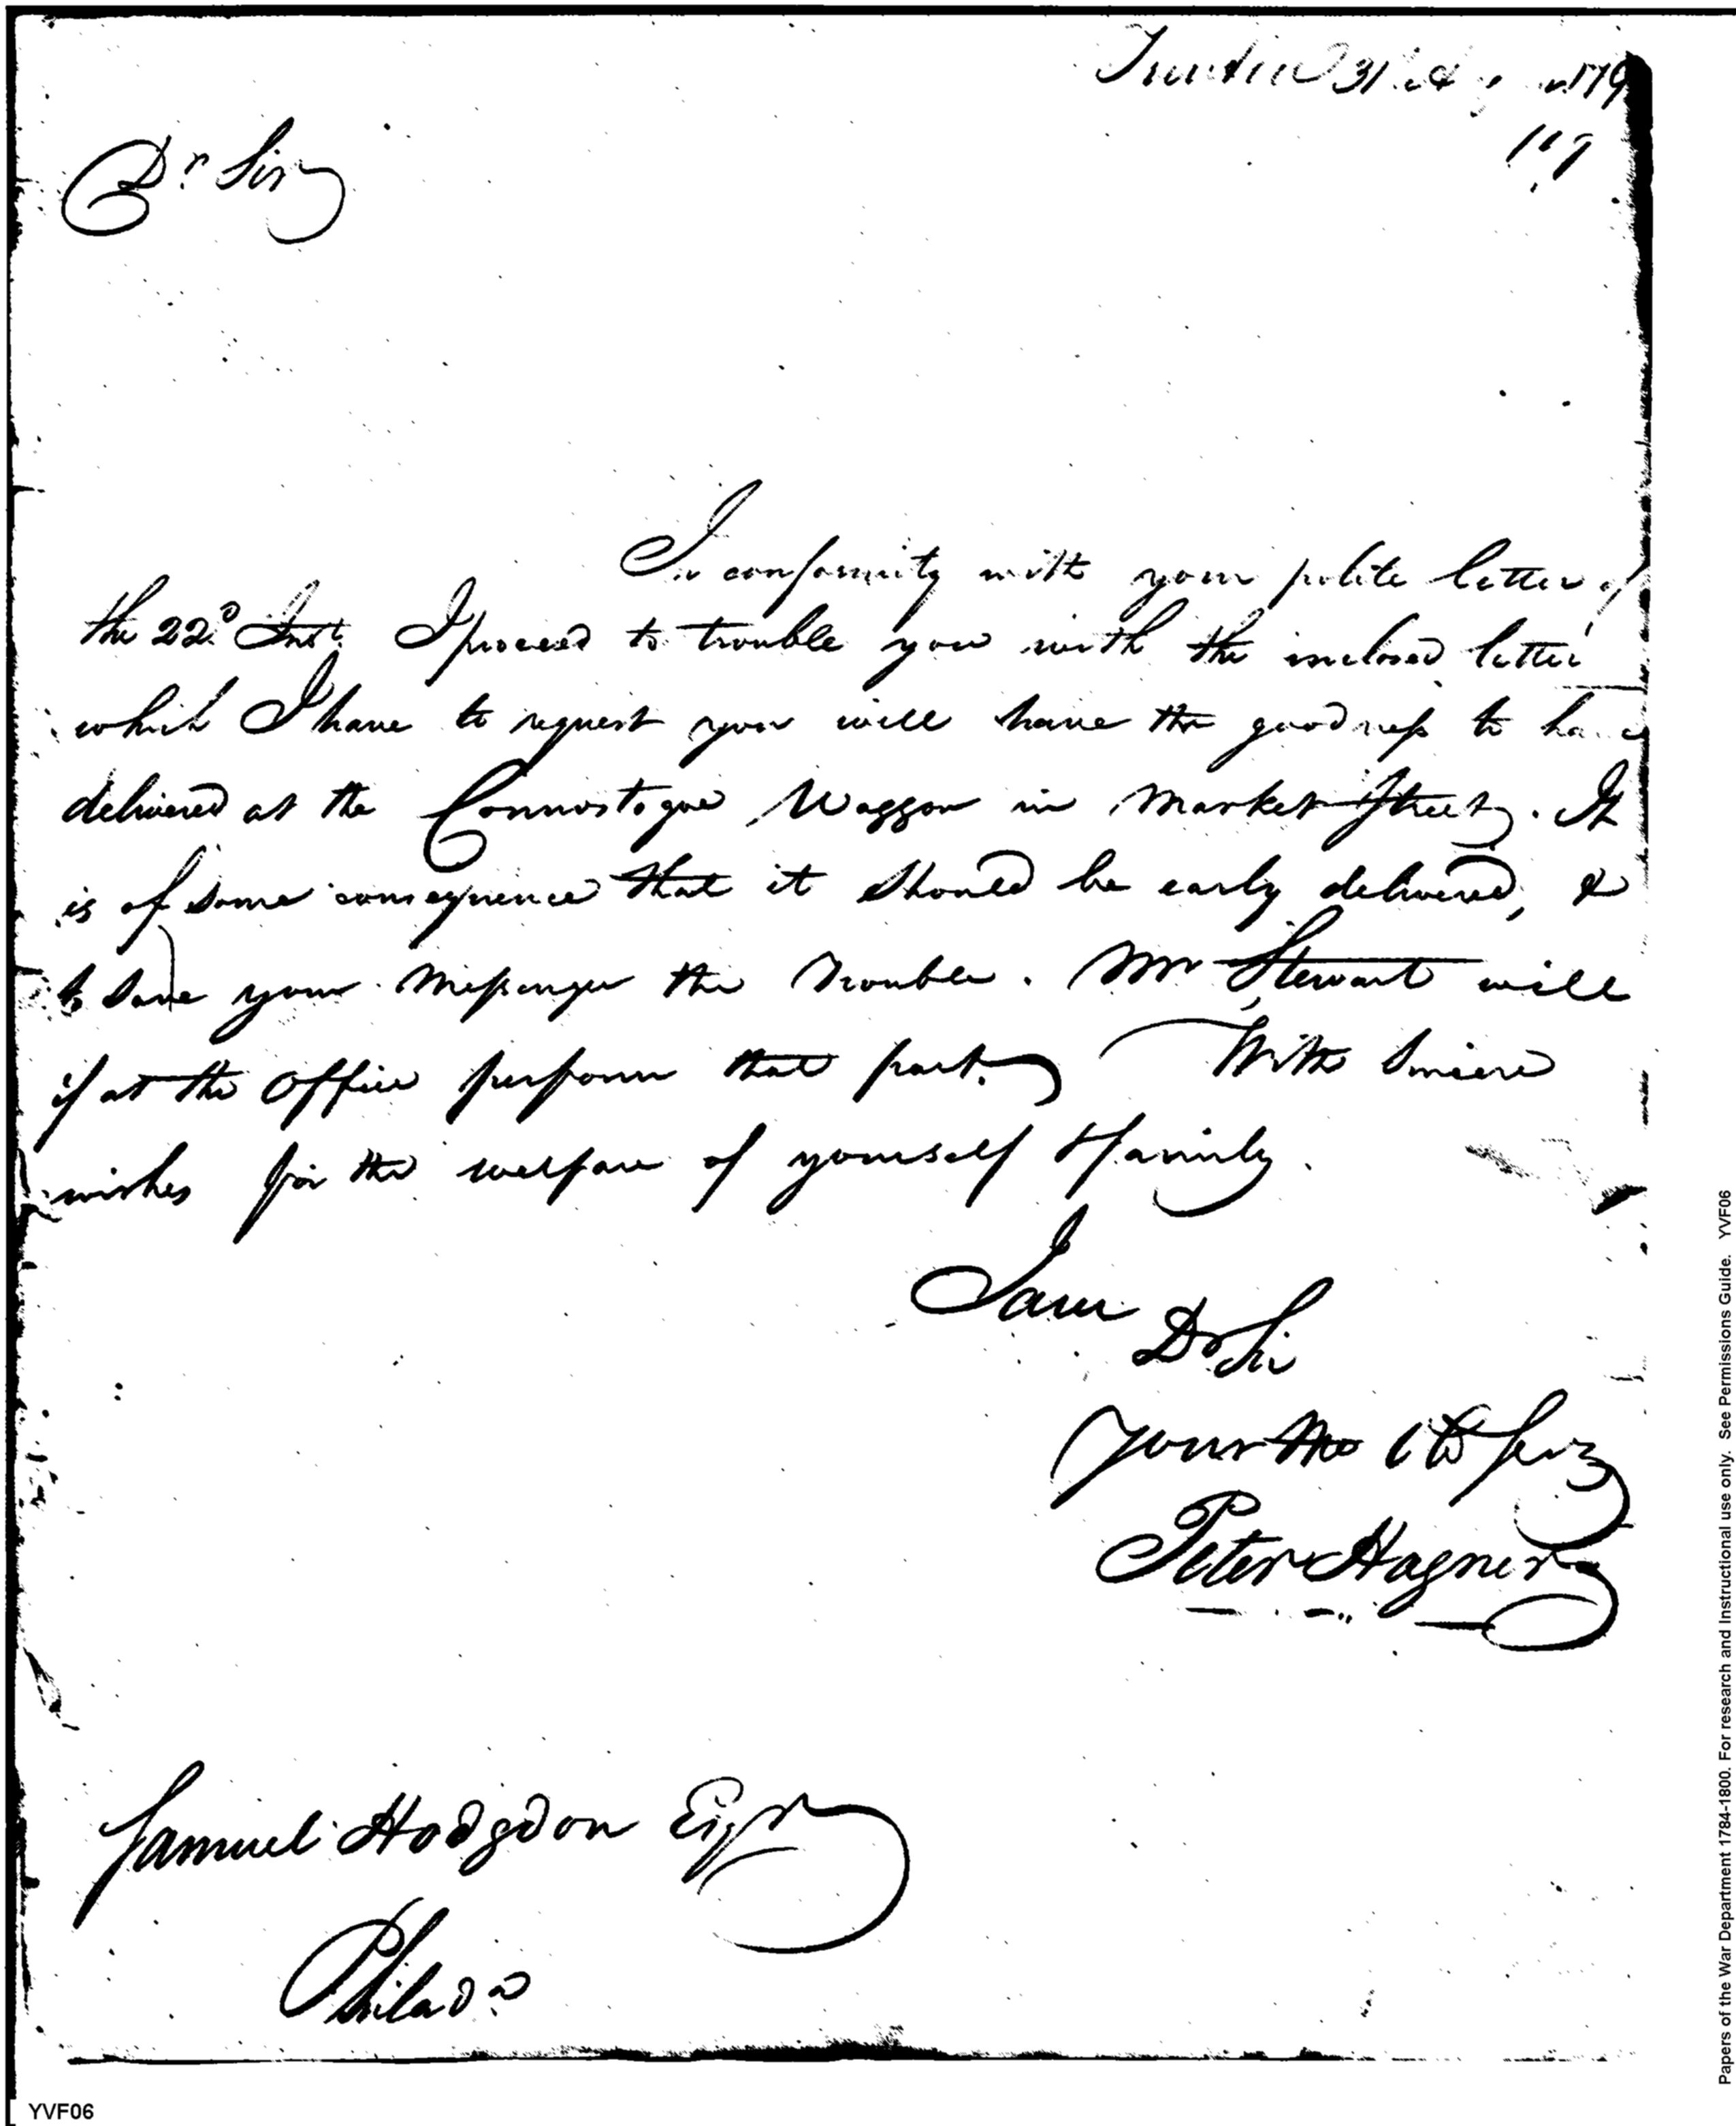 Trenton 31
Dr Sir
In conformity with your polite letter of
the 22d Inst. I proceed to trouble you with the inclosed letter
which I have to request you will have the goodness to have
delivered at the Connostogoe Waggon in Market Street. It
is of some consequence that it should be early delivered, &
to save your Messenger the trouble. Mr Stewart will
if at the Office perform that part. With sincere
wishes for the welfare of yourself & family.
I am
Dr Sir
Your Mo Ob Serv
Peter Hagner
Samuel Hodgdon Esqr
Philada
Papers of the War Department 1784-1800. For research and Instructional use only. See Permissions Guide. YVF06
YVF06